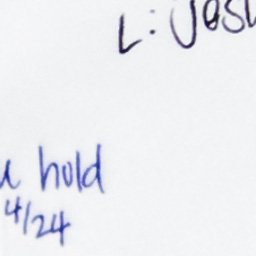 L: Jos
hold
4/24